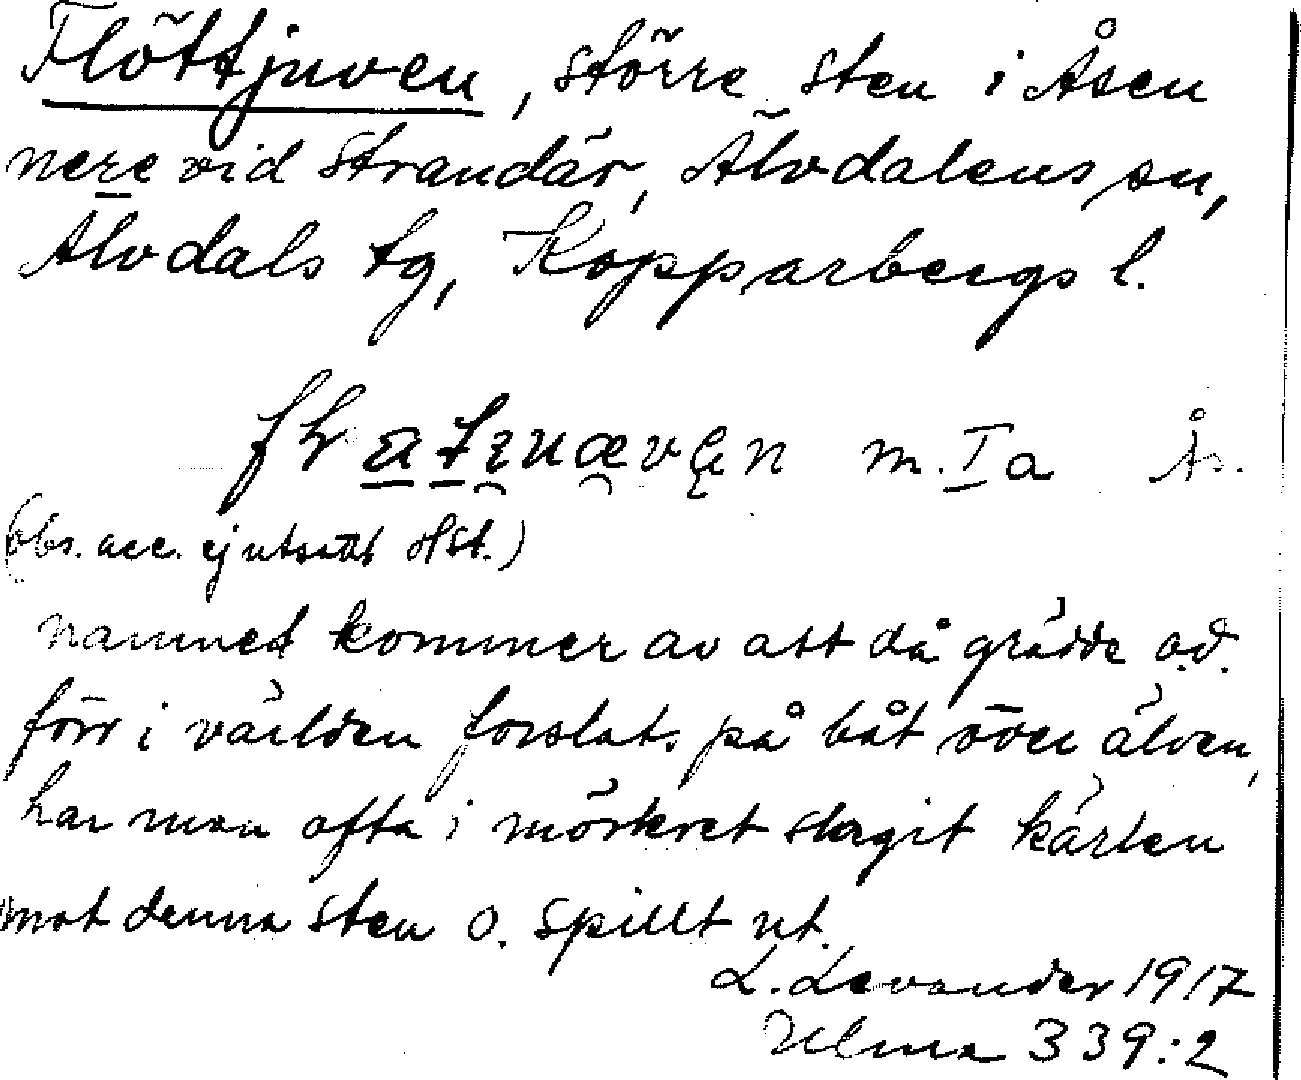 Flöttjuven, större sten i Åsen
nere vid Strandär, Älvdalens sn,
Älvdals tg, Kopparbergs l.
m. Ia Ås.
(obs. acc. ej utsatt HSt.)
namnet kommer av att då grädde o.d.
förr i världen forslats på båt över älven,
har man ofta i mörkret slagit kärlen
mot denna sten o. spillt ut.
L. Levander 1917
Ulma 339:2